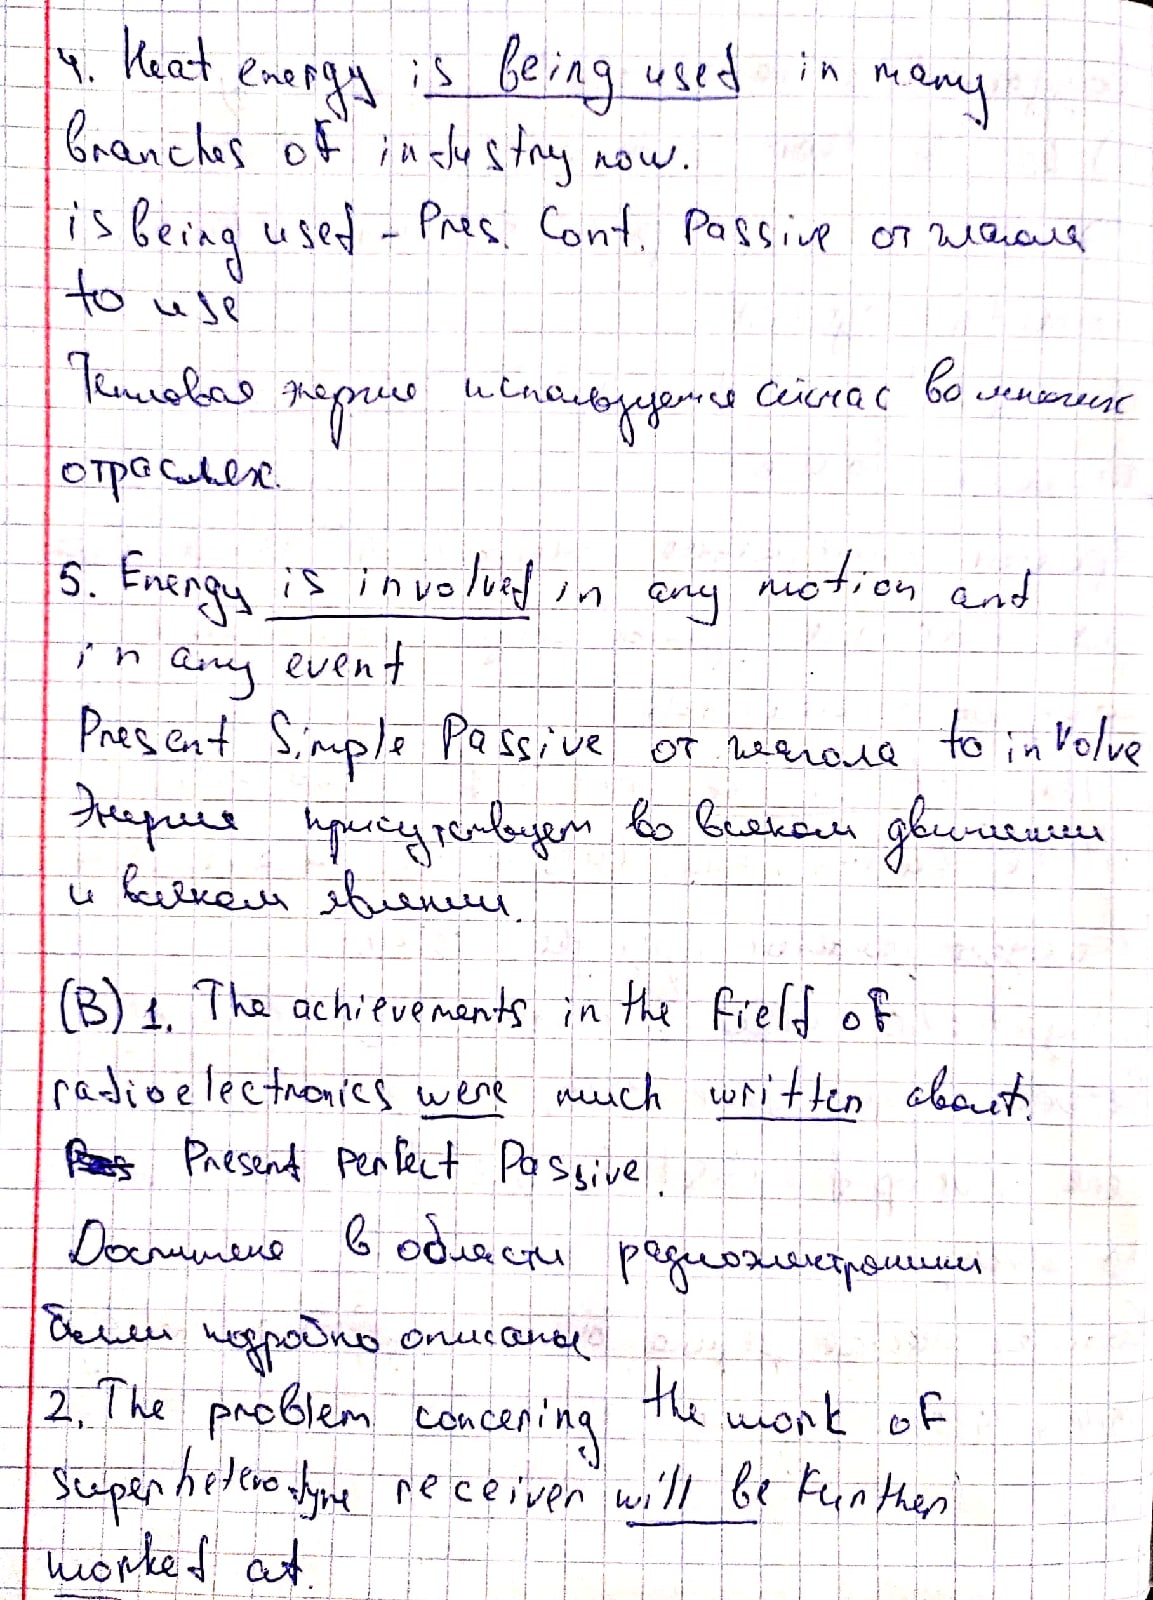 4. Heat energy is being used in many
branches of industry now.
is being used - Pres. Cont. Passive от глагола
to use
Тепловая энергия используется сейчас во многих
отраслях.
5. Energy is involved in any motion and
in any event
Present Simple Passive от глагола to involve
Энергия присутствует во всяком движении
и всяком явлении.
(B) 1. The achievements in the field of
radioelectronics were much written about.
Present perfect Passive.
Достижения в области радиоэлектроники
были подробно описаны
2. The problem concering the work of
superheterodyne receiver will be further
worked at.